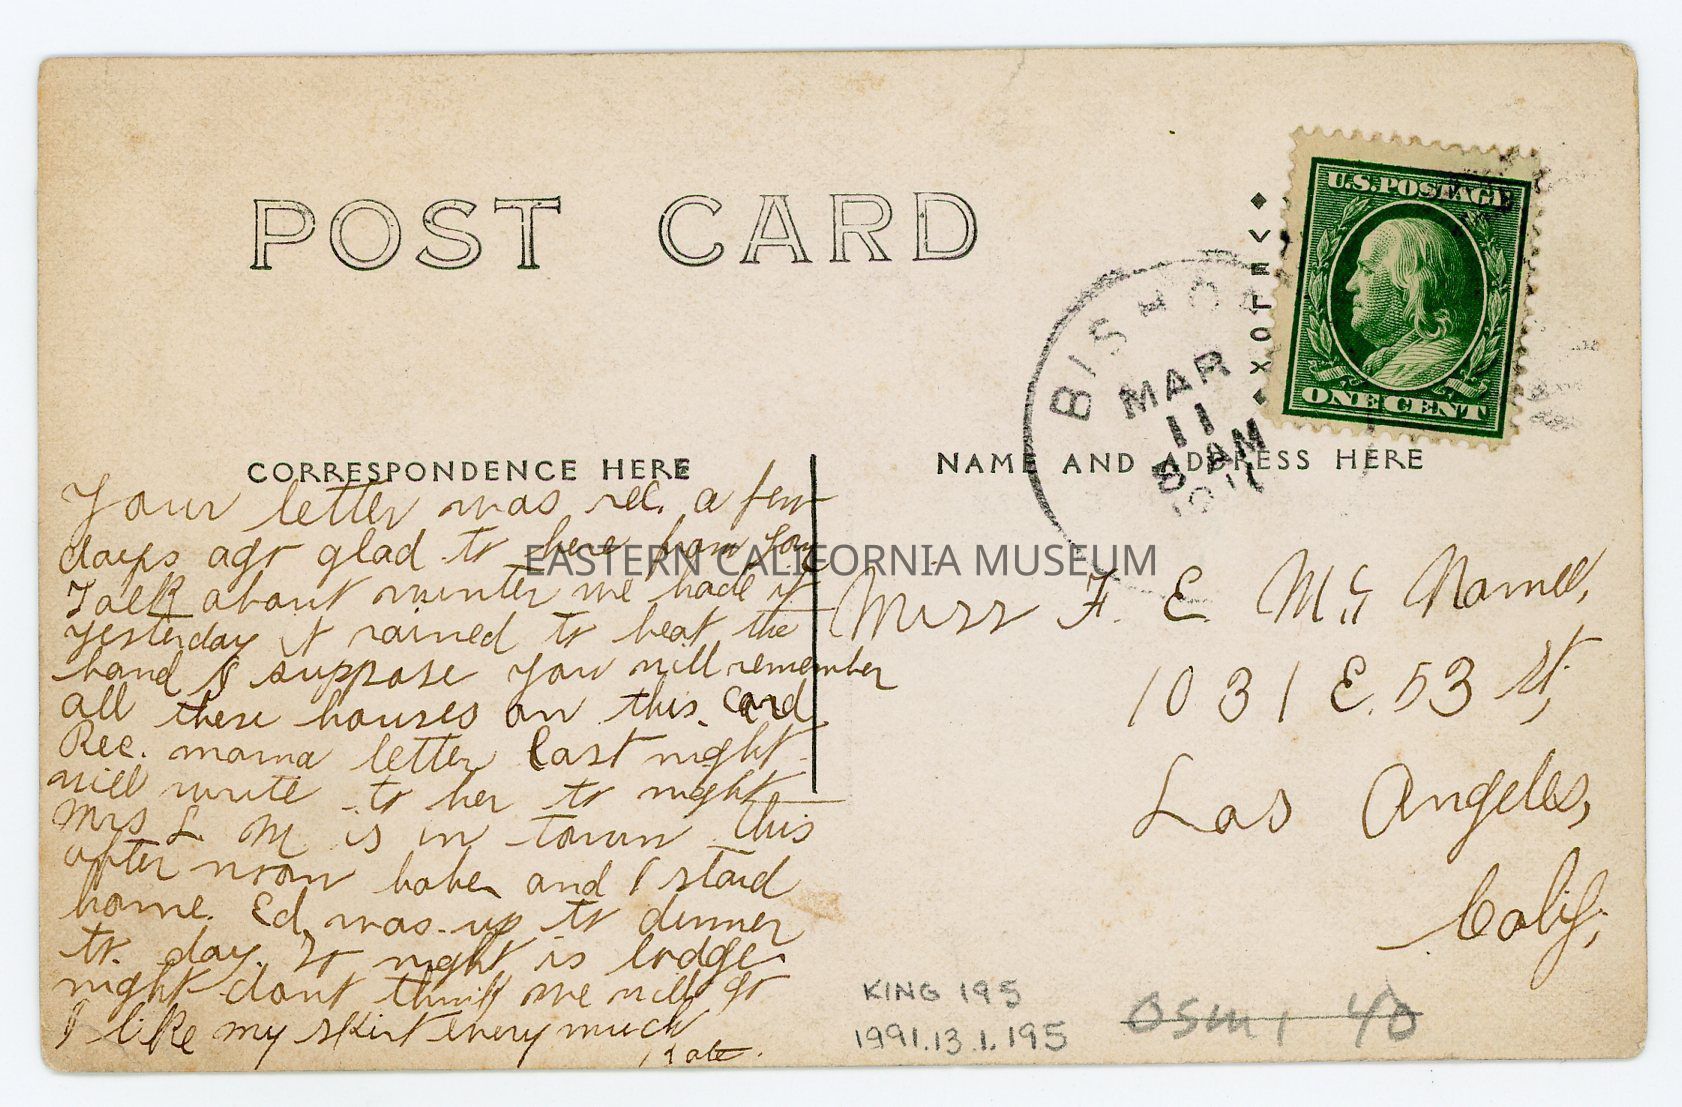 POST CARD
VELOX
U.S. POSTAGE
ONE CENT
BISHO
MAR
11
8 AM
CORRESPONDENCE HERE
NAME AND ADDRESS HERE
Your letter was rec. a few
days ago glad to here from you
Talk about winter we hade it
yesterday it rained to beat the
band I suppose you will remember
all these houses on this card
Rec. mama letter last night
will write to her to night
Mrs L M is in town this
after noon babe and I staid
home. Ed was up to dinner
to day. To night is lodge
night dont think we will go
I like my skirt very much
Kate.
Miss F. E. Mc Namee,
1031 E. 53 St,
Los Angeles,
Calif,
EASTERN CALIFORNIA MUSEUM
KING 195
1991.13.1.195